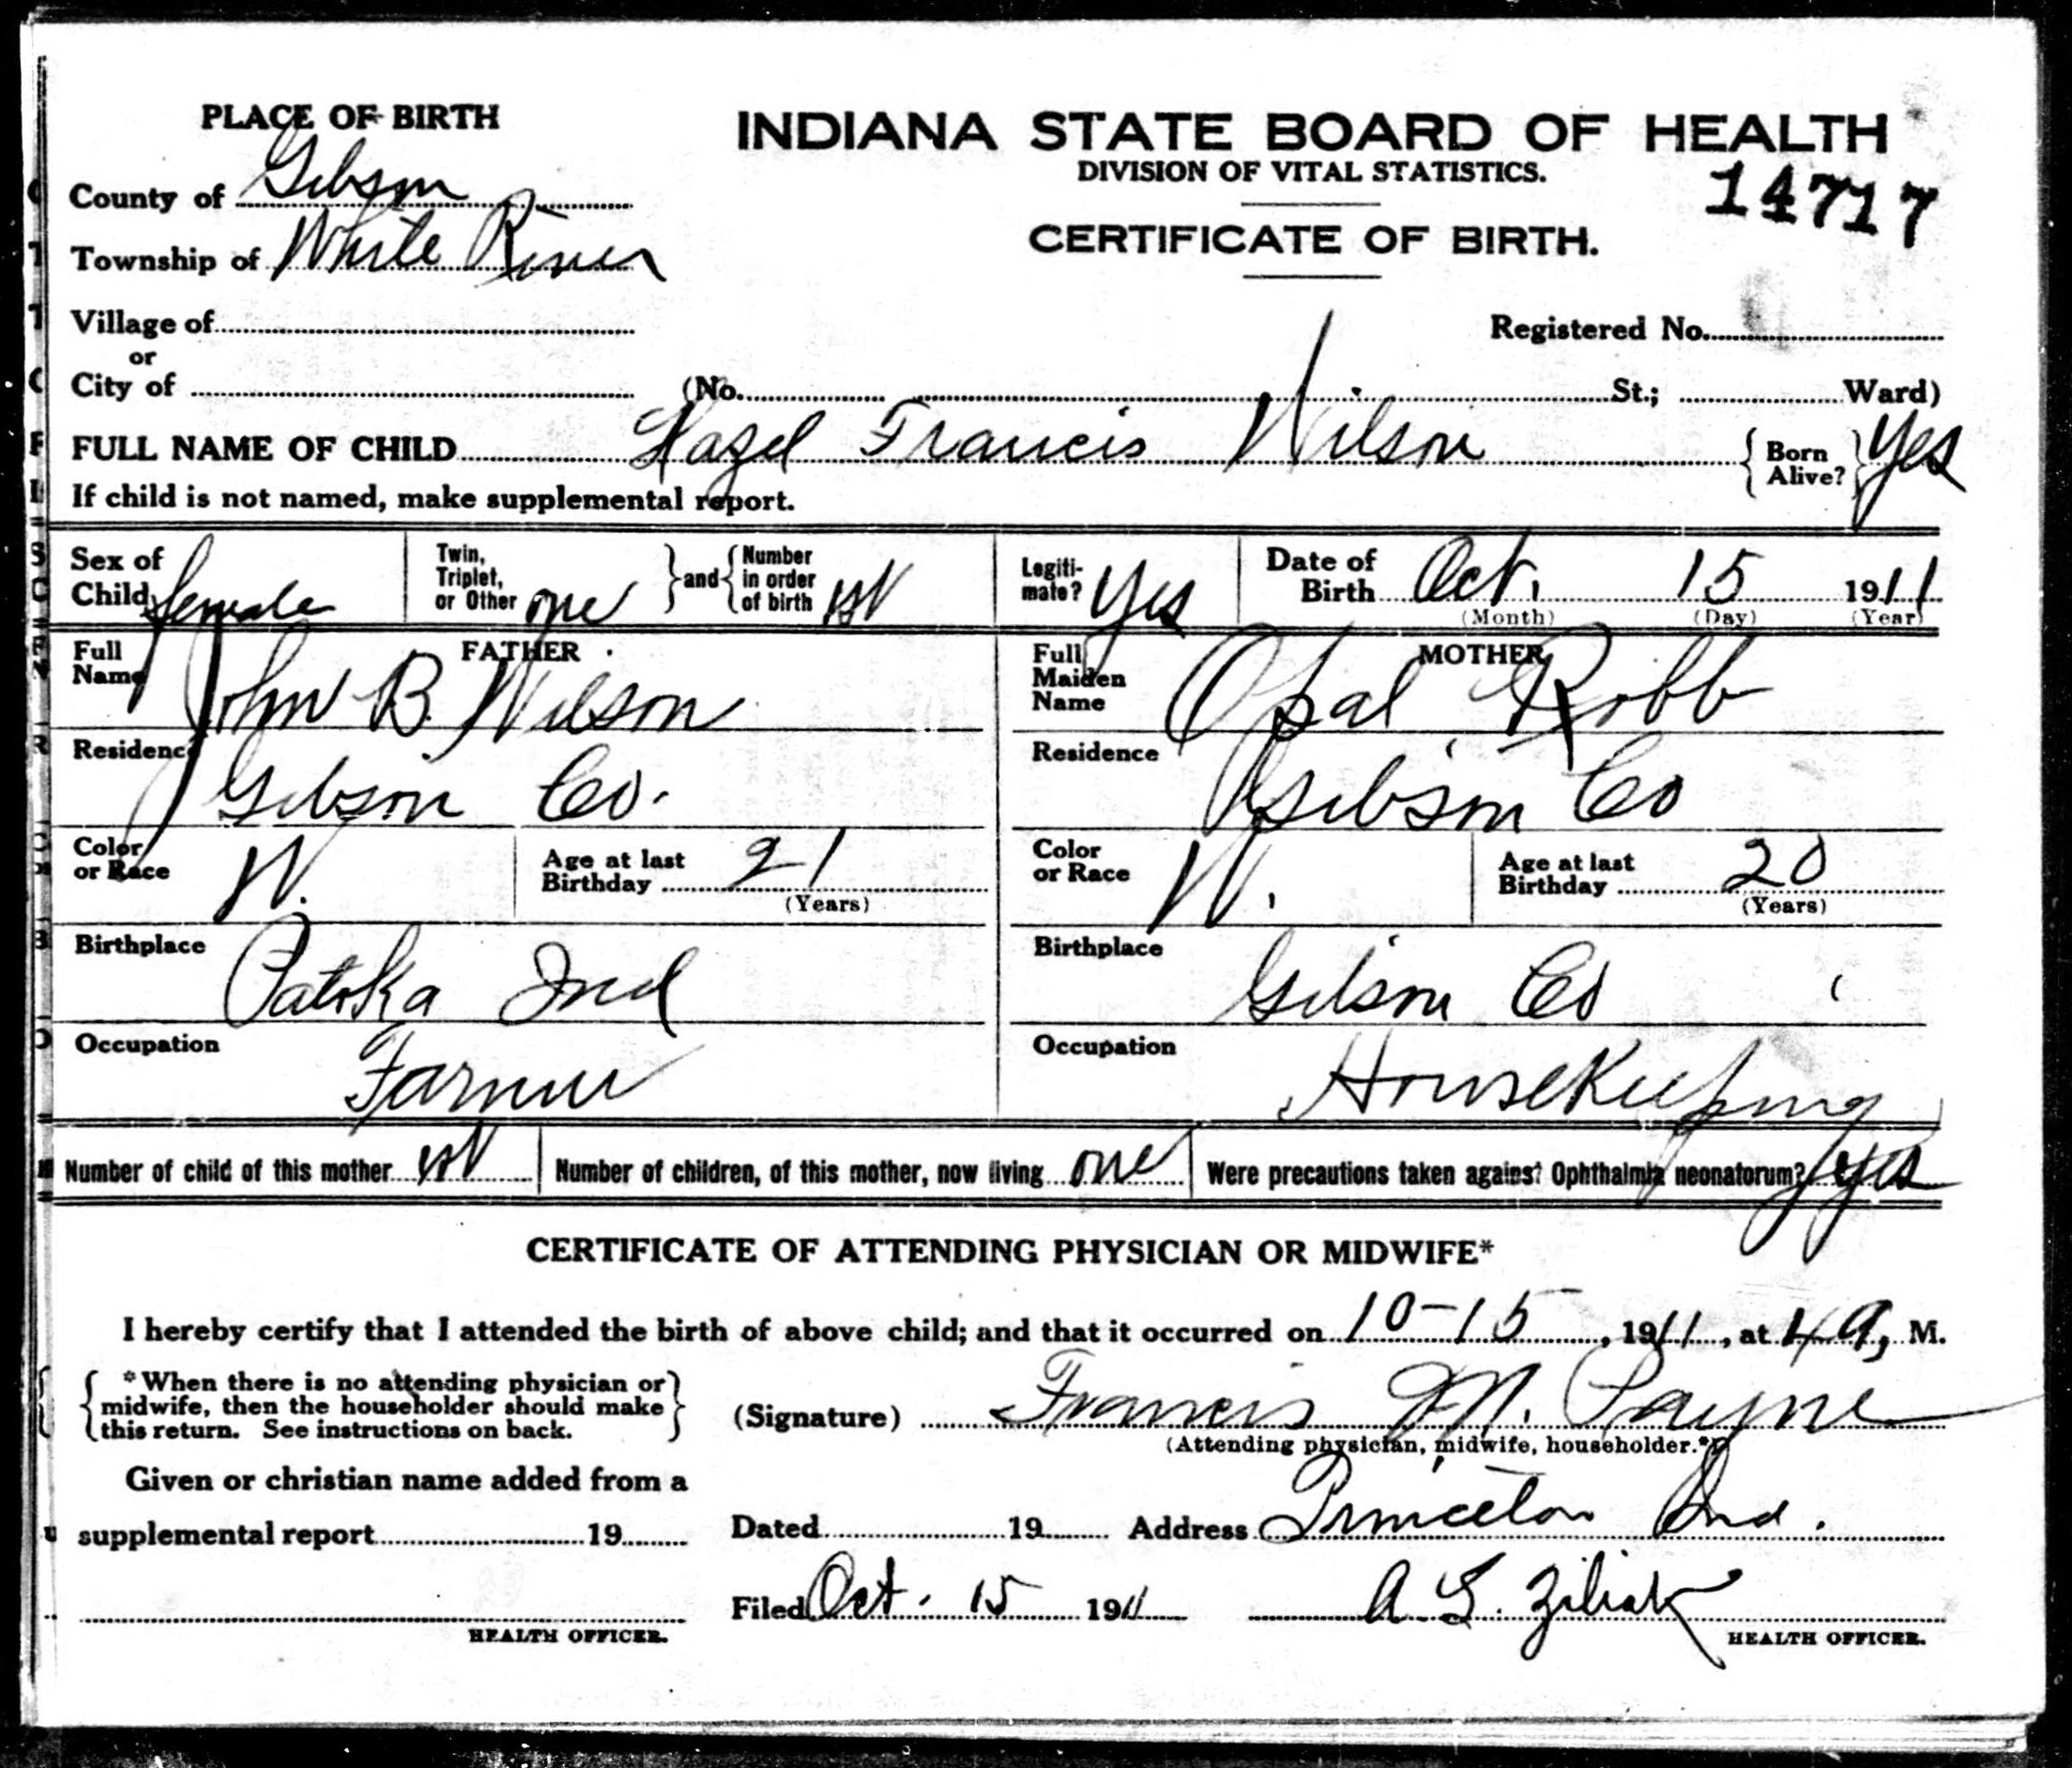 PLACE OF BIRTH
INDIANA STATE BOARD OF HEALTH
DIVISION OF VITAL STATISTICS.
14717
CERTIFICATE OF BIRTH.
County of Gibson
Township of White River
Village of
or
City of
Registered No.
(No. St.; Ward)
FULL NAME OF CHILD Hazel Francis Wilson { Born Alive? } Yes
If child is not named, make supplemental report.
Sex of Child female
Twin, Triplet, or Other one } and { Number in order of birth 1st
Legiti-mate? Yes
Date of Birth Oct. 15 1911
(Month) (Day) (Year)
FATHER
Full Name John B. Wilson
Residence Gibson Co.
Color or Race W.
Age at last Birthday 21
(Years)
Birthplace Patoka Ind
Occupation Farmer
MOTHER
Full Maiden Name Opal Robb
Residence Gibson Co
Color or Race W.
Age at last Birthday 20
(Years)
Birthplace Gibson Co
Occupation Housekeeping
Number of child of this mother 1st
Number of children, of this mother, now living one
Were precautions taken against Ophthalmia neonatorum? yes
CERTIFICATE OF ATTENDING PHYSICIAN OR MIDWIFE*
I hereby certify that I attended the birth of above child; and that it occurred on 10-15, 1911, at 4 a, M.
{ *When there is no attending physician or }
{ midwife, then the householder should make }
{ this return. See instructions on back. }
(Signature) Francis M. Payne
(Attending physician, midwife, householder.*)
Given or christian name added from a
supplemental report 19
HEALTH OFFICER.
Dated 19 Address Princeton Ind.
Filed Oct. 15 1911 A. G. Ziliak
HEALTH OFFICER.